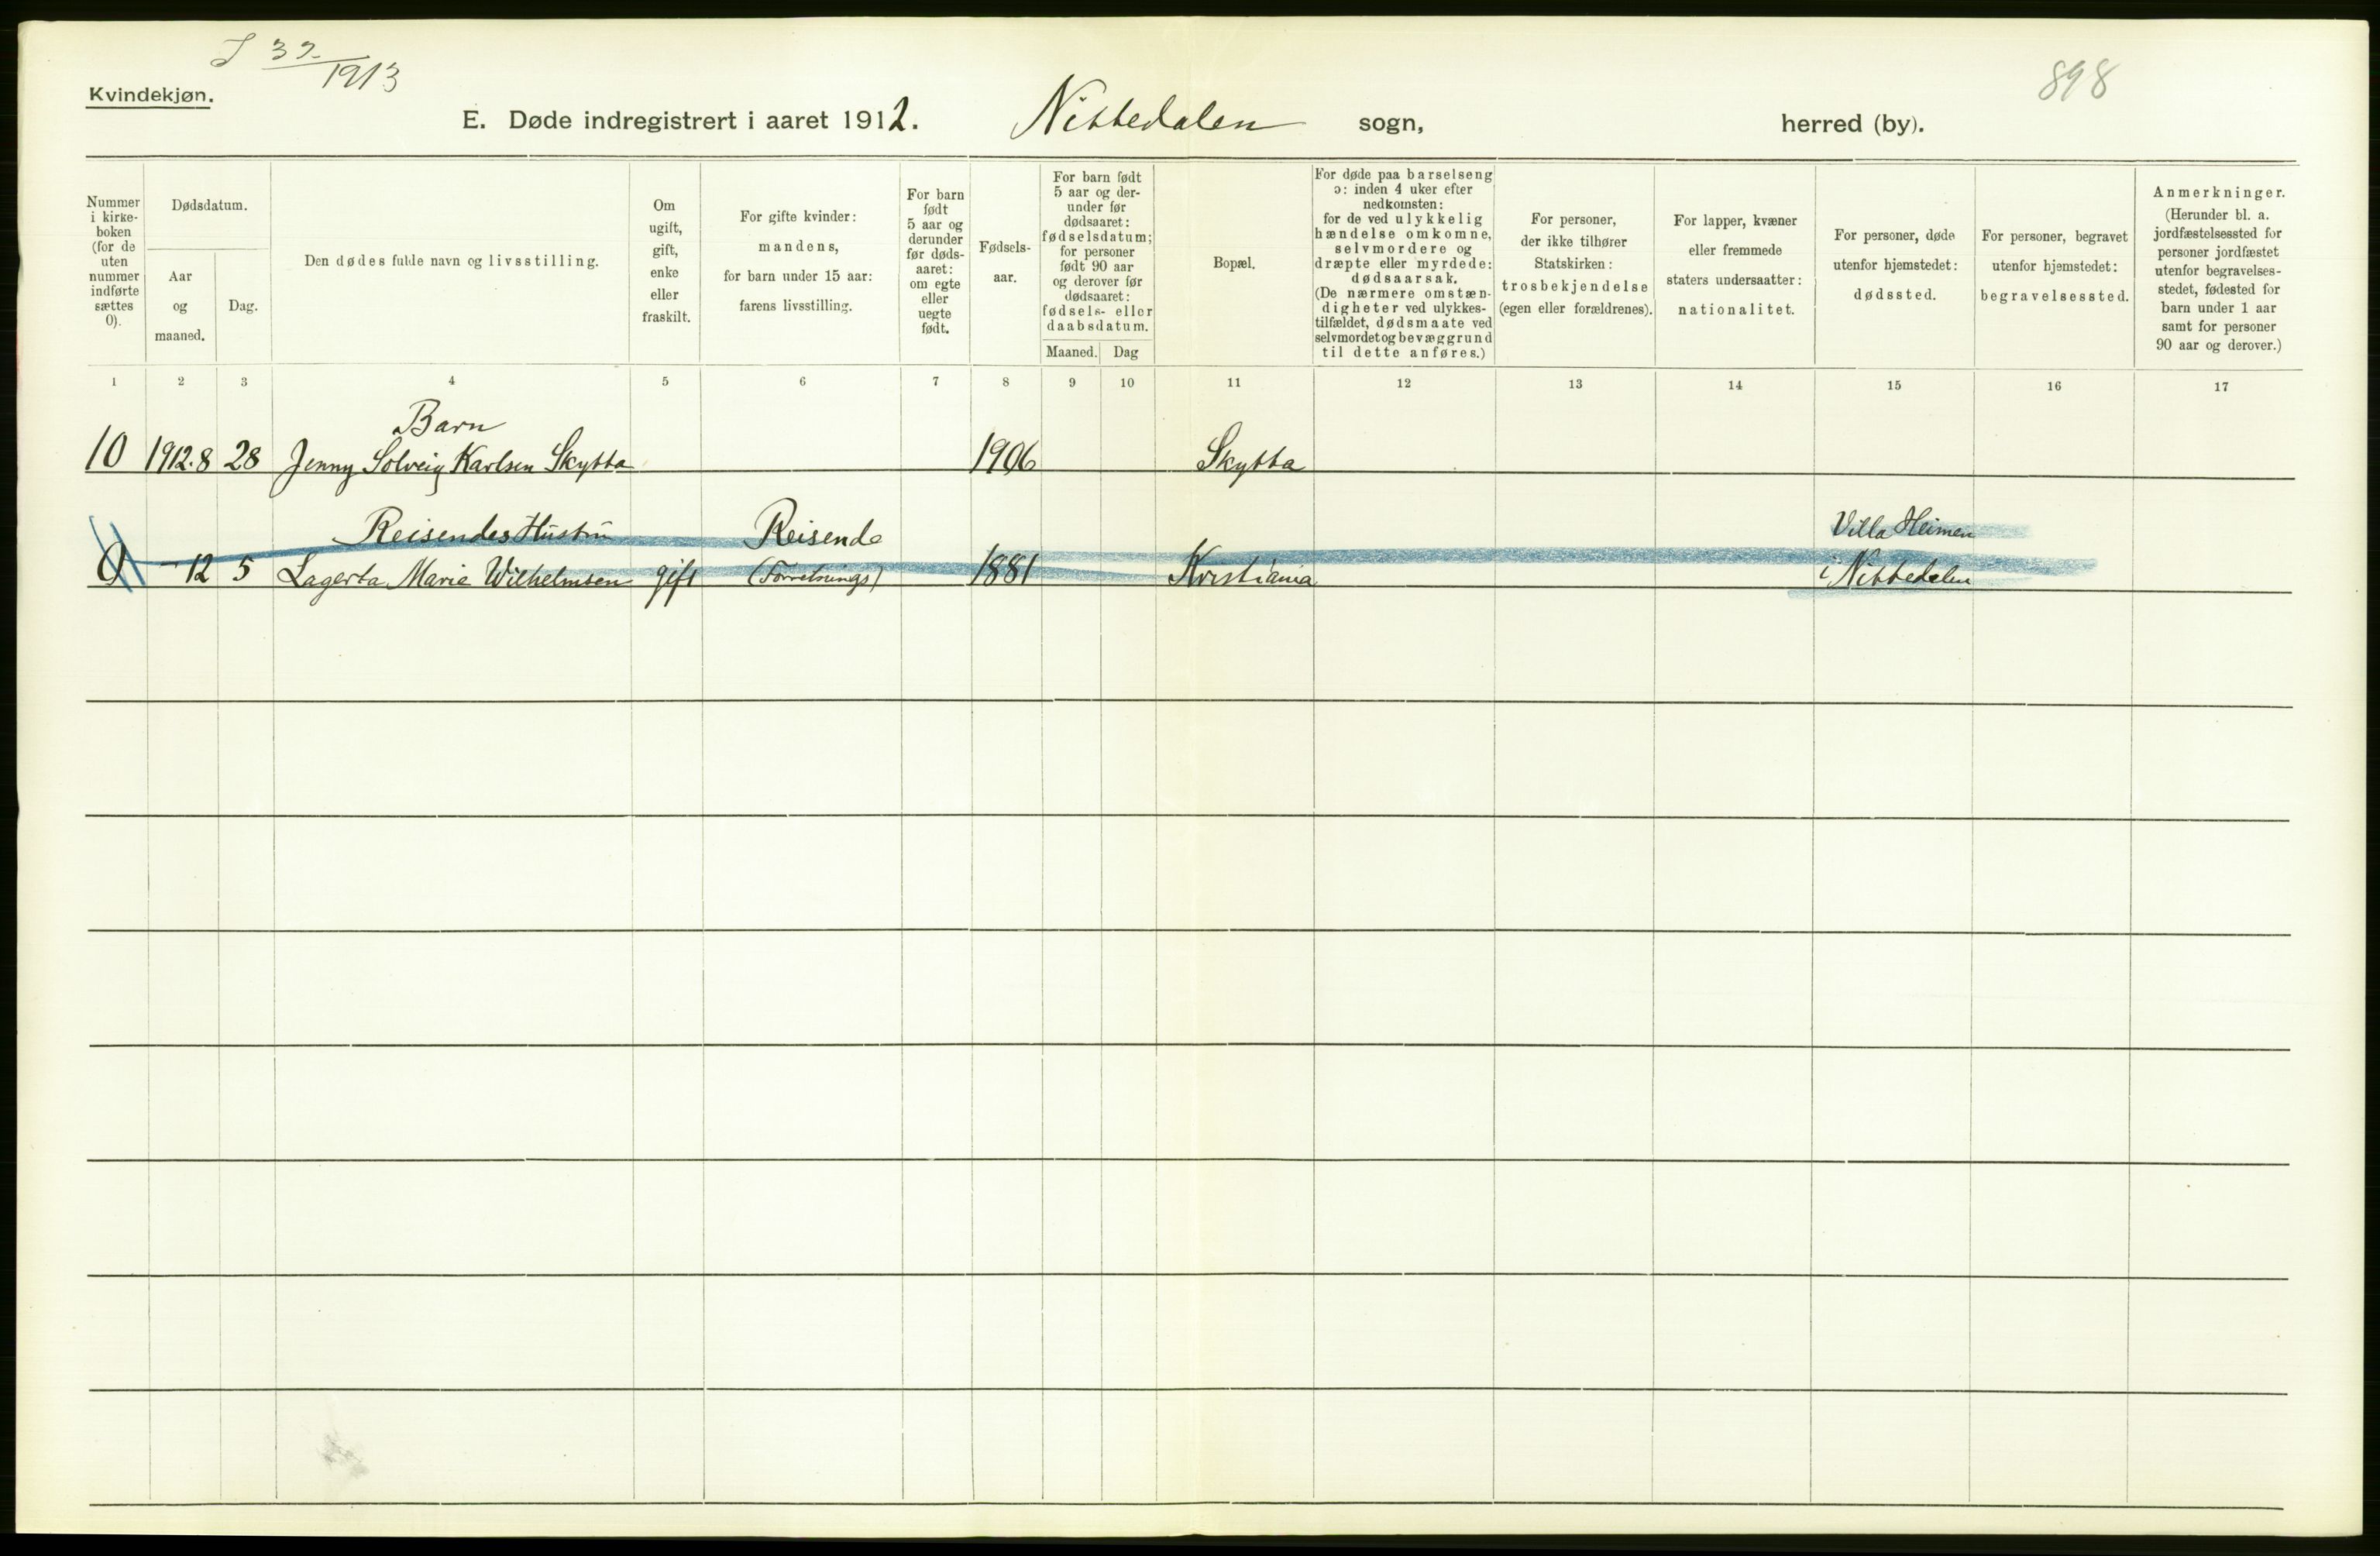 J 37/1913
898
Kvindekjøn.
E. Døde indregistrert i aaret 1912. Nittedalen sogn, herred (by).
Nummer
i kirke-
boken
(for de
uten
nummer
indførte
sættes
0).
Dødsdatum.
Aar
og
maaned.
Dag.
Den dødes fulde navn og livsstilling.
Om
ugift,
gift,
enke
eller
fraskilt.
For gifte kvinder:
mandens,
for barn under 15 aar:
farens livsstilling.
For barn
født
5 aar og
derunder
før døds-
aaret:
om egte
eller
uegte
født.
Fødsels-
aar.
For barn født
5 aar og der-
under før
dødsaaret:
fødselsdatum;
for personer
født 90 aar
og derover før
dødsaaret:
fødsels- eller
daabsdatum.
Maaned. Dag
Bopæl.
For døde paa barselseng
ɔ: inden 4 uker efter
nedkomsten:
for de ved ulykkelig
hændelse omkomne,
selvmordere og
dræpte eller myrdede:
dødsaarsak.
(De nærmere omstæn-
digheter ved ulykkes-
tilfældet, dødsmaate ved
selvmordet og bevæggrund
til dette anføres.)
For personer,
der ikke tilhører
Statskirken:
trosbekjendelse
(egen eller forældrenes).
For lapper, kvæner
eller fremmede
staters undersaatter:
nationalitet.
For personer, døde
utenfor hjemstedet:
dødssted.
For personer, begravet
utenfor hjemstedet:
begravelsessted.
Anmerkninger.
(Herunder bl. a.
jordfæstelsessted for
personer jordfæstet
utenfor begravelses-
stedet, fødested for
barn under 1 aar
samt for personer
90 aar og derover.)
1 2 3 4 5 6 7 8 9 10 11 12 13 14 15 16 17
Barn
10 1912.8 28 Jenny Solveig Karlsen Skytta 1906 Skytta
Reisendes Hustru Reisende Villa Heimen
0 - 12 5 Lagerta Marie Wilhelmsen gift (Forretnings) 1881 Kristiania i Nittedalen